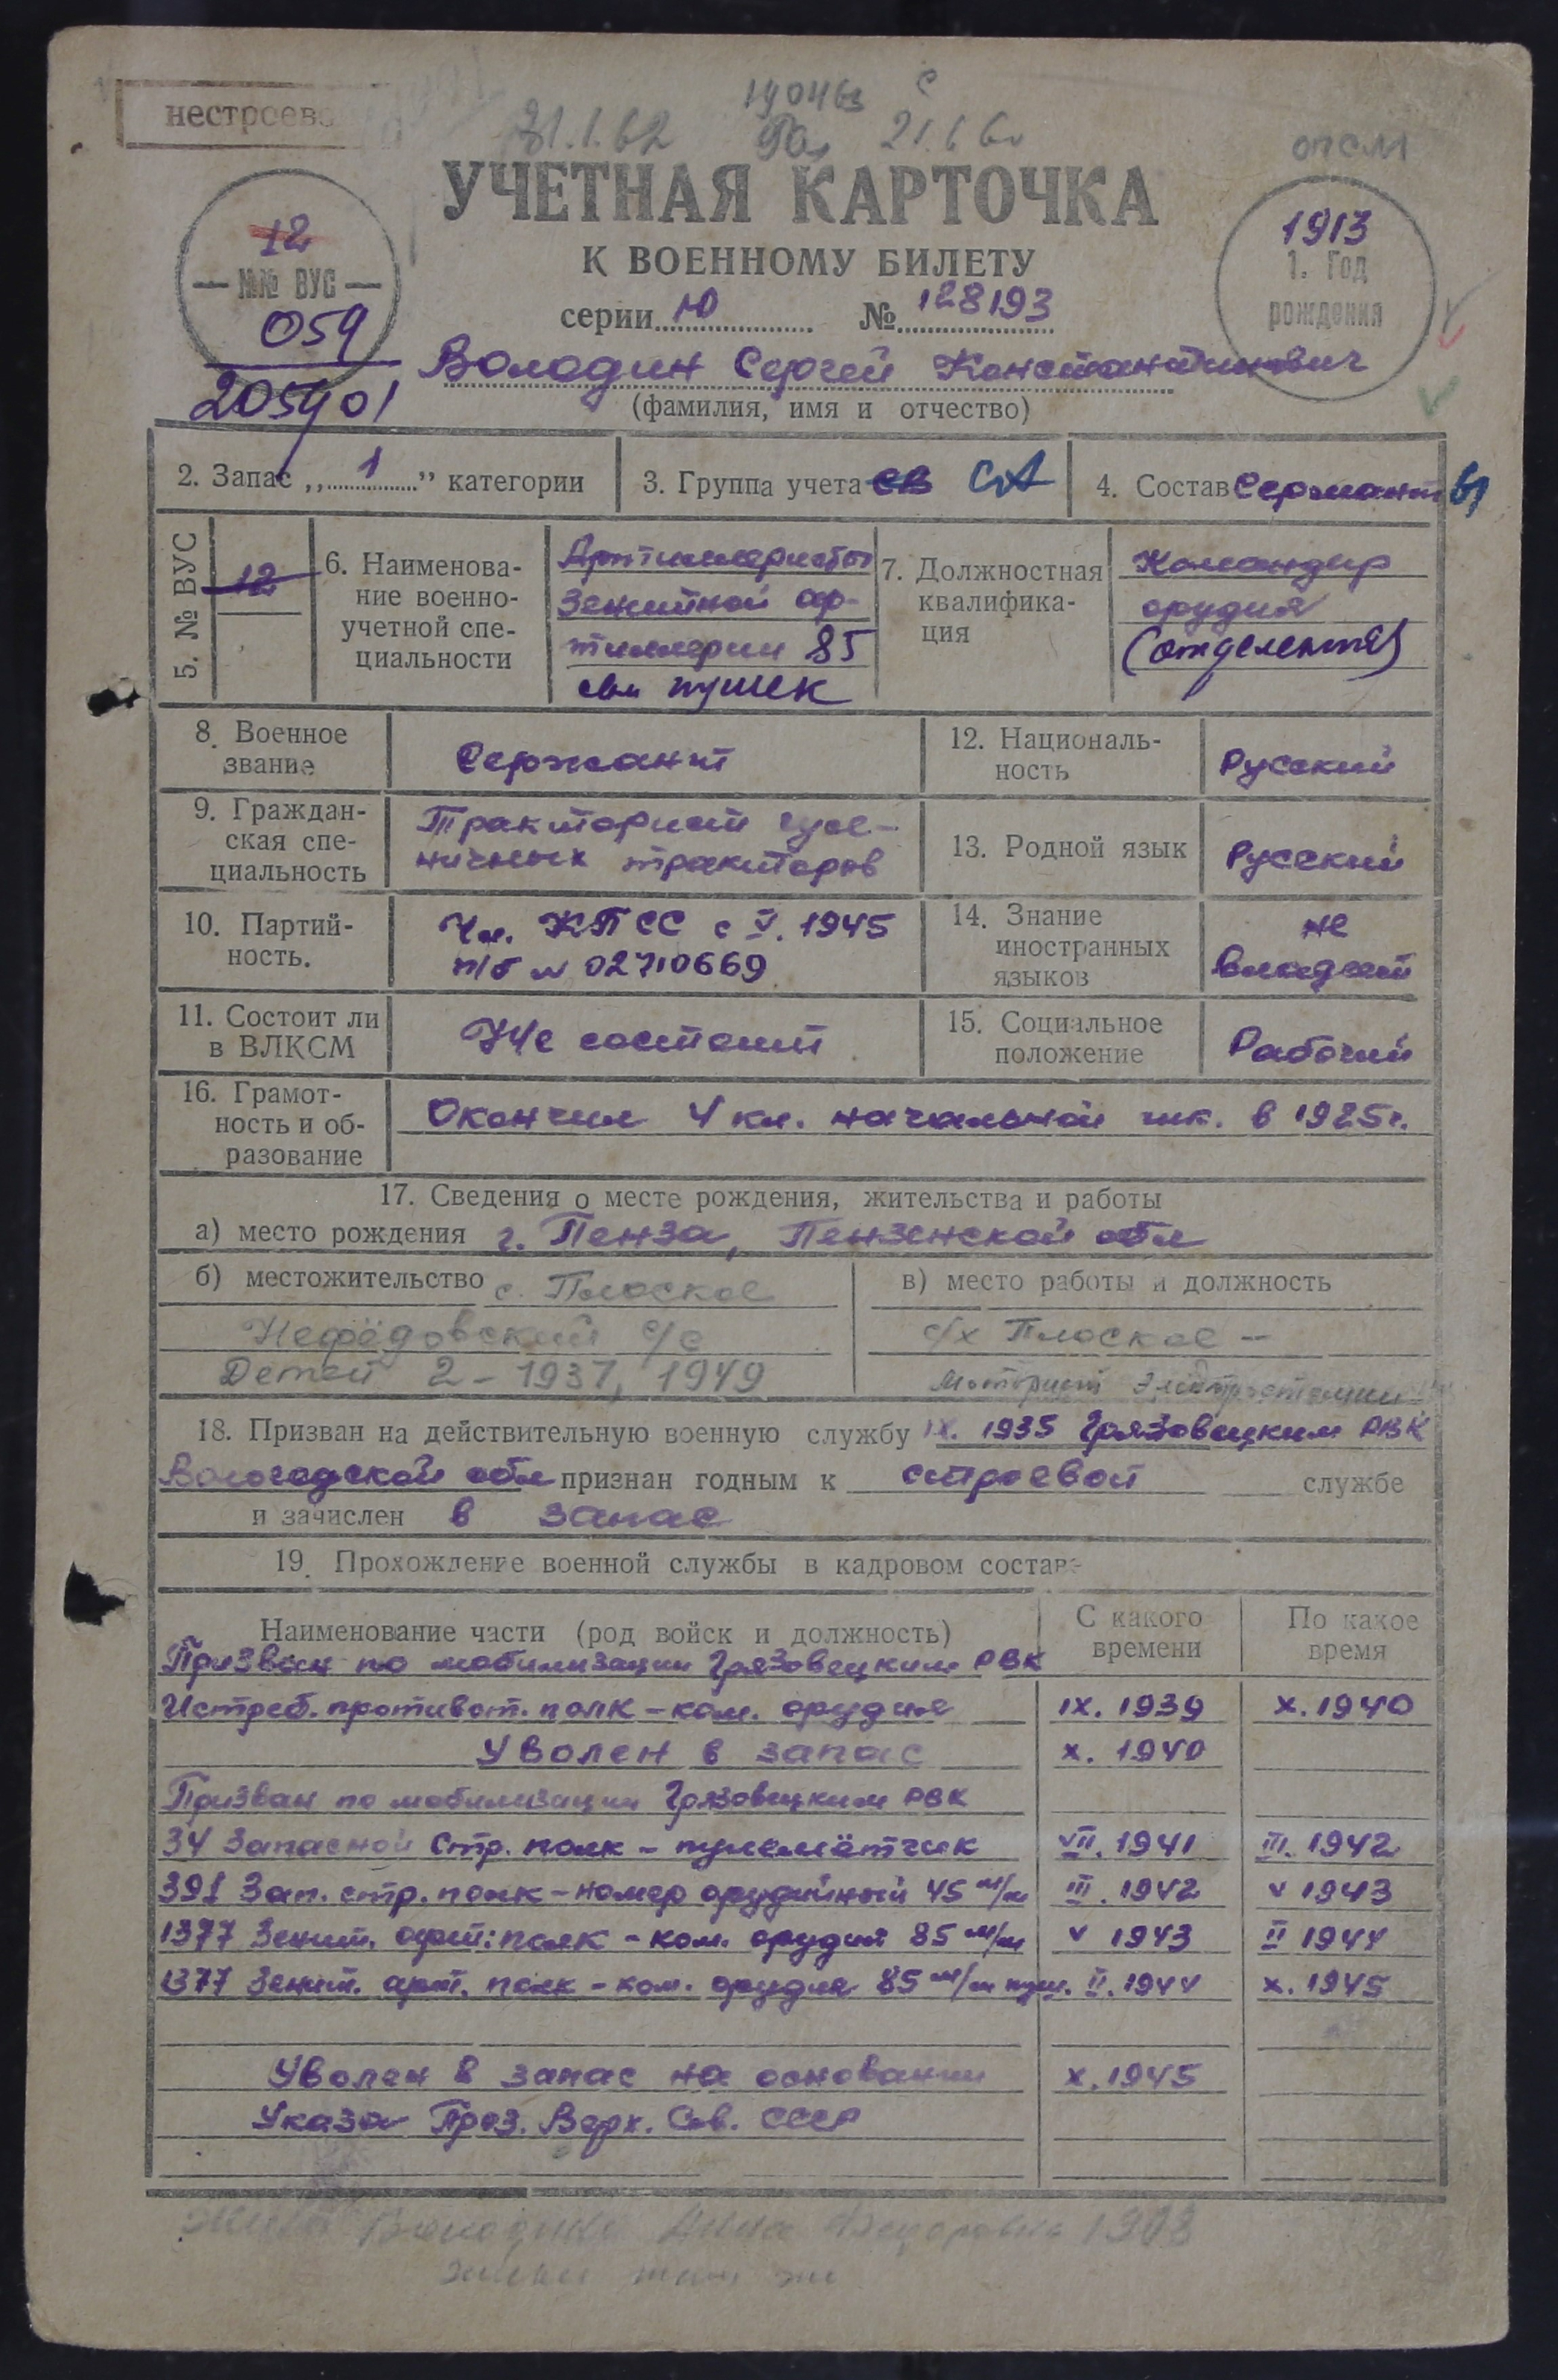 нестроево
31.1.62
21.1.6
опсм
УЧЕТНАЯ КАРТОЧКА
К ВОЕННОМУ БИЛЕТУ
серии Ю № 128193
12
— №№ ВУС —
059
205901
1913
1. Год
рождения
Володин Сергей Константинович
(фамилия, имя и отчество)
2. Запас „1” категории
3. Группа учета СВ СА
4. Состав Сержанты
5. № ВУС
12
6. Наименова-
ние военно-
учетной спе-
циальности
Артиллеристы
зенитной ар-
тиллерии 85
мм пушек
7. Должностная
квалифика-
ция
Командир
орудия
(отделения)
8. Военное
звание
Сержант
12. Националь-
ность
Русский
9. Граждан-
ская спе-
циальность
Тракторист гусе-
ничных тракторов
13. Родной язык
Русский
10. Партий-
ность.
Чл. КПСС с V. 1945
п/б № 02710669
14. Знание
иностранных
языков
не
владеет
11. Состоит ли
в ВЛКСМ
Не состоит
15. Социальное
положение
Рабочий
16. Грамот-
ность и об-
разование
Окончил 4 кл. начальной шк. в 1925г.
17. Сведения о месте рождения, жительства и работы
а) место рождения г. Пенза, Пензенской обл
б) местожительство с. Плоское
Нефёдовский с/с
Детей 2 - 1937, 1949
в) место работы и должность
с/х Плоское -
Моторист электростанции
18. Призван на действительную военную службу IX. 1935 Грязовецким РВК
Вологодской обл признан годным к строевой службе
и зачислен в запас
19. Прохождение военной службы в кадровом составе
Наименование части (род войск и должность)
С какого
времени
По какое
время
Призван по мобилизации Грязовецким РВК
Истреб. противот. полк - ком. орудия IX. 1939 X. 1940
Уволен в запас X. 1940
Призван по мобилизации Грязовецким РВК
34 Запасной Стр. полк - пулемётчик VII. 1941 III. 1942
391 Зап. стр. полк - номер орудийный 45 м/м III. 1942 V 1943
1377 Зенит. арт. полк - ком. орудия 85 м/м V 1943 II 1944
1377 Зенит. арт. полк - ком. орудия 85 м/м пуш. II. 1944 X. 1945
Уволен в запас на основании X. 1945
Указа През. Верх. Сов. СССР
Жена Володина Анна Федоровна 1908